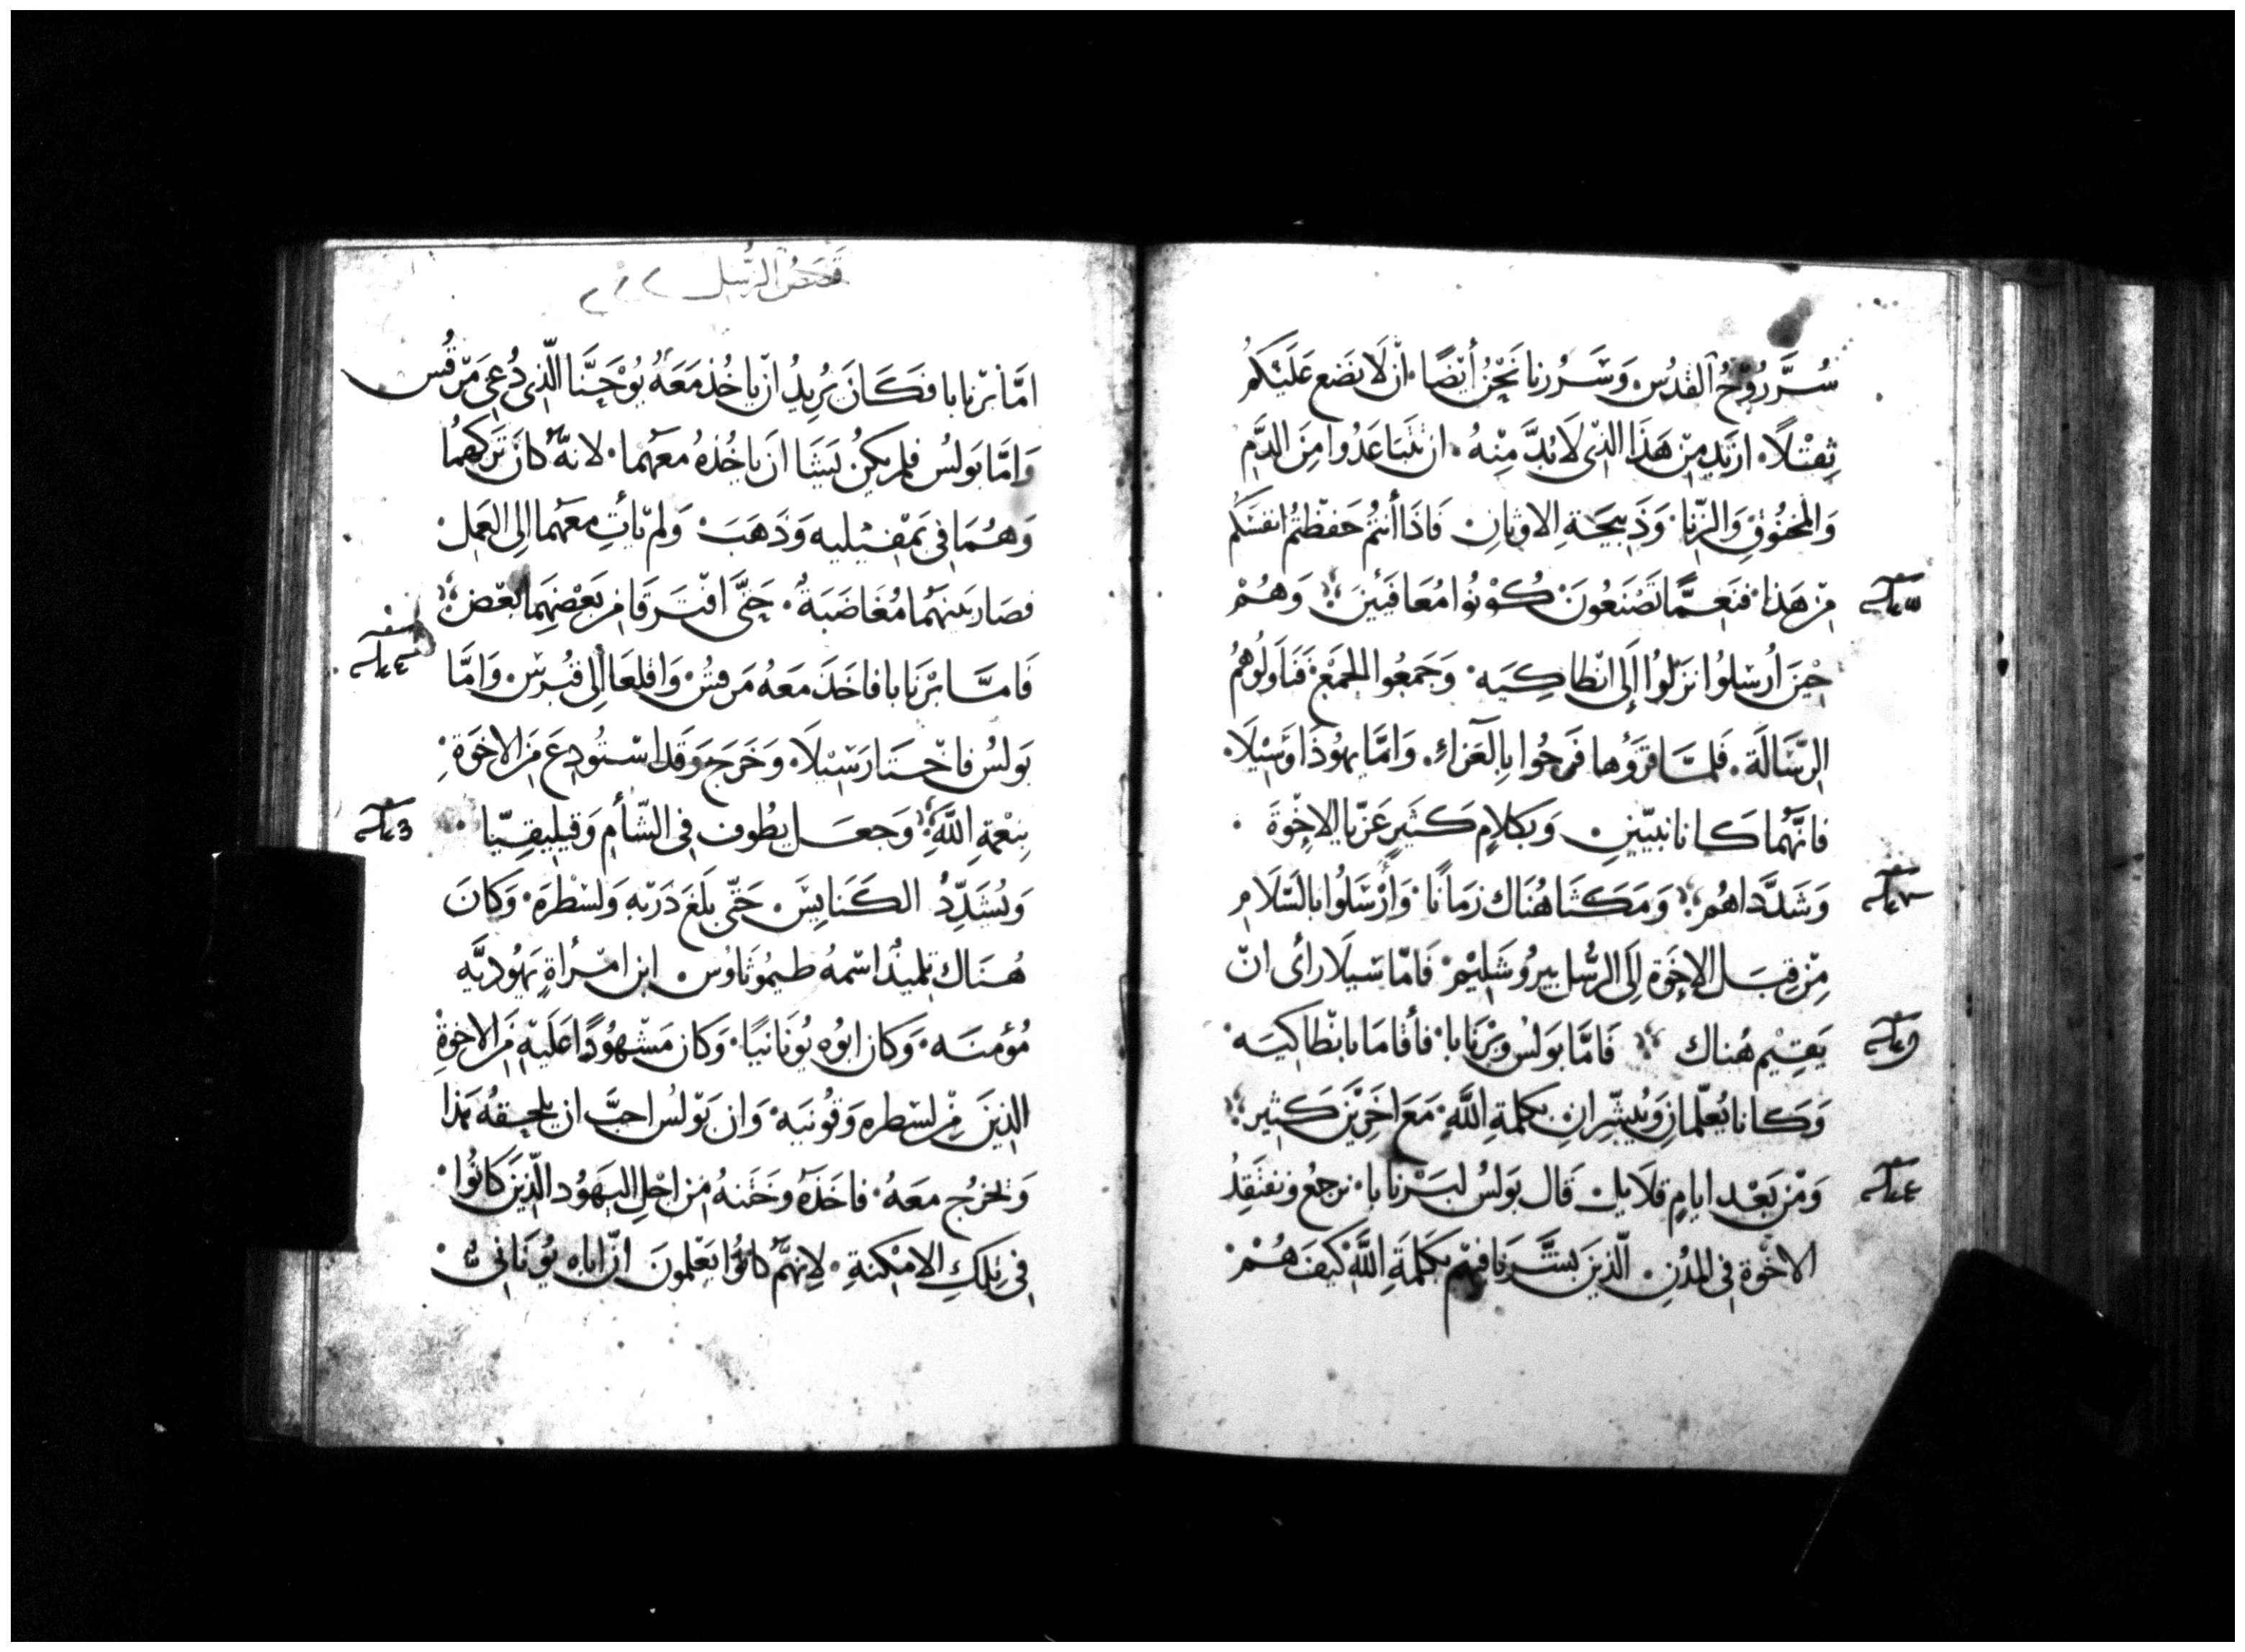 سُرَّ رُوْحُ القدُس وَسَررنا نَحْنُ أيْضًا ان لَا نضَع عَلَيْكُمْ
ثِقْلًا ازيَد مِنْ هَذَا الذى لَابُدَّ مِنْهُ ان تَتَبَاعَدُوا مِنَ الدَّمِ
وَالمخنُوقِ وَالزِّنا وَذَبِيحَةِ الاوثانِ فَاذَا أنتُمْ حَفظْتُمْ انفسَكُم
مِنْ هَذا فنَعِمَّا تَصْنَعُونَ كُوْنُوا مُعَافَيْنَ وَهُمْ
حِيْنَ أُرْسِلُوا نزَلُوا إِلَى انْطاكِيَه وَجَمَعُوا المجمَعْ فَنَاوَلُوهُمُ
الرِّسَالَة فَلمَّا قرَؤها فَرحُوا بِالعَزاءِ وَامَّا يهُوذَا وَسِيْلَا
فانَّهُما كَانا نبيّينِ وَبكَلامٍ كَثيرٍ عَزّيا الاخْوَةَ
وَشَدَّدَاهُم وَمَكَثَا هُنَاك زمَانًا وَأُرْسَلُوا بالسَّلَامِ
مِنْ قِبَل الاخوَة إِلَى الرُّسُل بيروشَلِيمْ فَامّا سيلَا رأى انْ
يَقِيْم هُناك فَامَّا بَولُس وَبَرْنَابا فأقامَا بانْطاكِيَه
وَكانا يُعلّمانِ وَيُبَشِّرانِ بكلمةِ اللَّهِ مَعَ اخَرِيْنَ كَثِير
وَمْن بَعْد ايامٍ قلَايل قَال بَولسُ لبَرْنابا نرجعُ ونفتَقِدُ
الاخْوَة فى المُدُنِ الّذينَ بَشَّرنَا فيهم بكَلمَةِ اللَّهِ كَيفَ هُمْ
قصَص الرُّسل
امَّا بَرْنابا فكَانَ يُرِيدُ ان ياخُذ مَعَهُ يُوْحَنَّا الّذى دُعِىَ مَرْقُس
وَامَّا بَولُس فلم يكُنْ يَشَا ان ياخُذهُ معَهُما لانهُ كَانَ تَركَهُما
وَهُمَا فى بَمْفِيليه وَذَهَبَ وَلم يأتِ معَهُما الى العَمَلْ
فصَار بَينَهُما مُغَاضَبَةُ حَتَّى افْتَرَقَا مِن بَعْضِهِما بَعْض
فَامَّا بَرْنَابا فاخَذَ مَعَهُ مَرقُسْ وَاقلَعَا الى قبُرسْ وَامَّا
بَولسُ فاخْتَارَ سْيلَا وَخَرَجَ وَقَد اسْتُودِعَ مِنَ الاخوَةِ
بِنعْمةِ اللَّهِ وَجعَل يطُوف فى الشَّأم وَقيليقيّيا
وَيُشَدِّدُ الكَنَايسَ حَتّى بلَغَ دَرْبَه وَلسْطرَه وَكَانَ
هُنَاك تِلميذُ اسْمهُ طيمُوثاوُس ابن امْرأةٍ يَهُوديَّه
مُؤمنَه وَكان ابُوه يُونَانيًا وَكان مَشْهُودًا عَلَيْهِ مِنَ الاخوَةِ
الذينَ مِنْ لسْطره وَقُونيَه وَان بَوْلسُ احبَّ ان يلحقهُ هَذا
وَيخرُج معَهُ فاخَذَهُ وَخَتَنهُ من اجل اليَهوُد الّذينَ كَانُوا
فى تِلكَ الامكنةِ لانهُم كانوُا يعْلمونَ انَّ اباه يُونانىٌّ